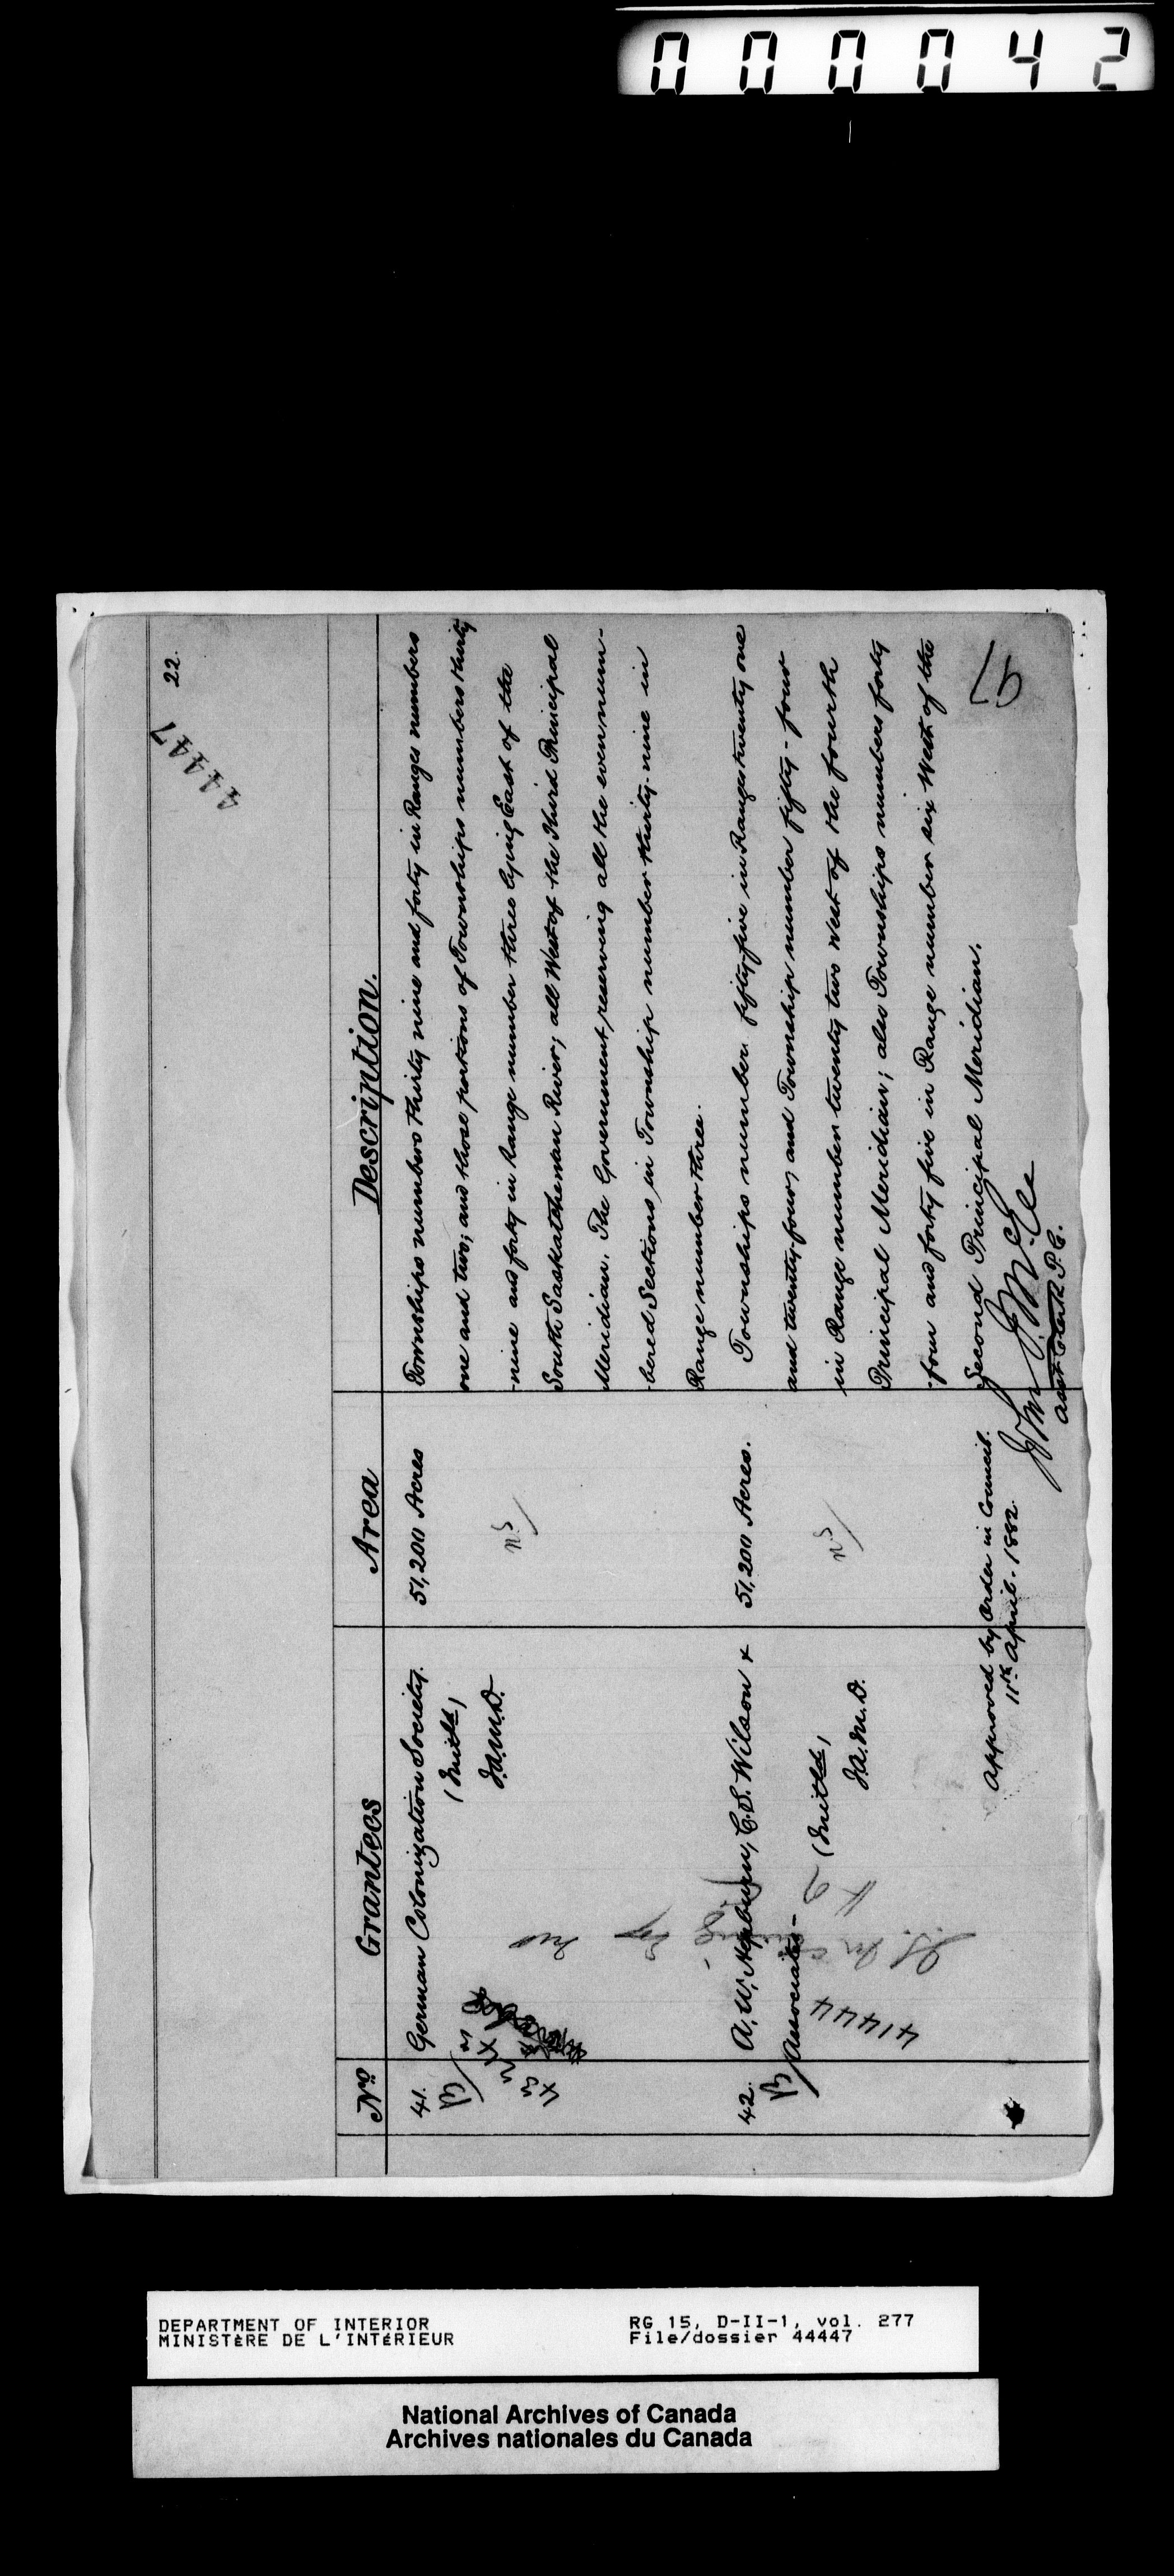 000042
22.
44447
No
Grantees
Area
Description.
41.
German Colonization Society.
(Initld)
J.A.M.D.
51,200 Acres
Townships numbers thirty nine and forty in Ranges numbers
one and two; and those portions of Townships numbers thirty
-nine and forty in Range number three lying East of the
South Saskatchewan River; all West of the Third Principal
Meridian. The Government reserving all the even num-
-bered Sections in Township number thirty-nine in
Range number three.
42.
A. W. Hepburn, C. S. Wilson &
Associates -
(Initld)
J.A.M.D.
41444
51,200 Acres.
Townships number fifty five in Ranges twenty one
and twenty-four, and Township number fifty-four
in Range number twenty two West of the fourth
Principal Meridian; also Townships numbers forty
-four and forty five in Range number six West of the
Second Principal Meridian.
Approved by Order in Council.
11th April. 1882.
John J. McGee
Asst Clerk P.C.
DEPARTMENT OF INTERIOR
MINISTÈRE DE L'INTÉRIEUR
RG 15, D-II-1, vol. 277
File/dossier 44447
National Archives of Canada
Archives nationales du Canada